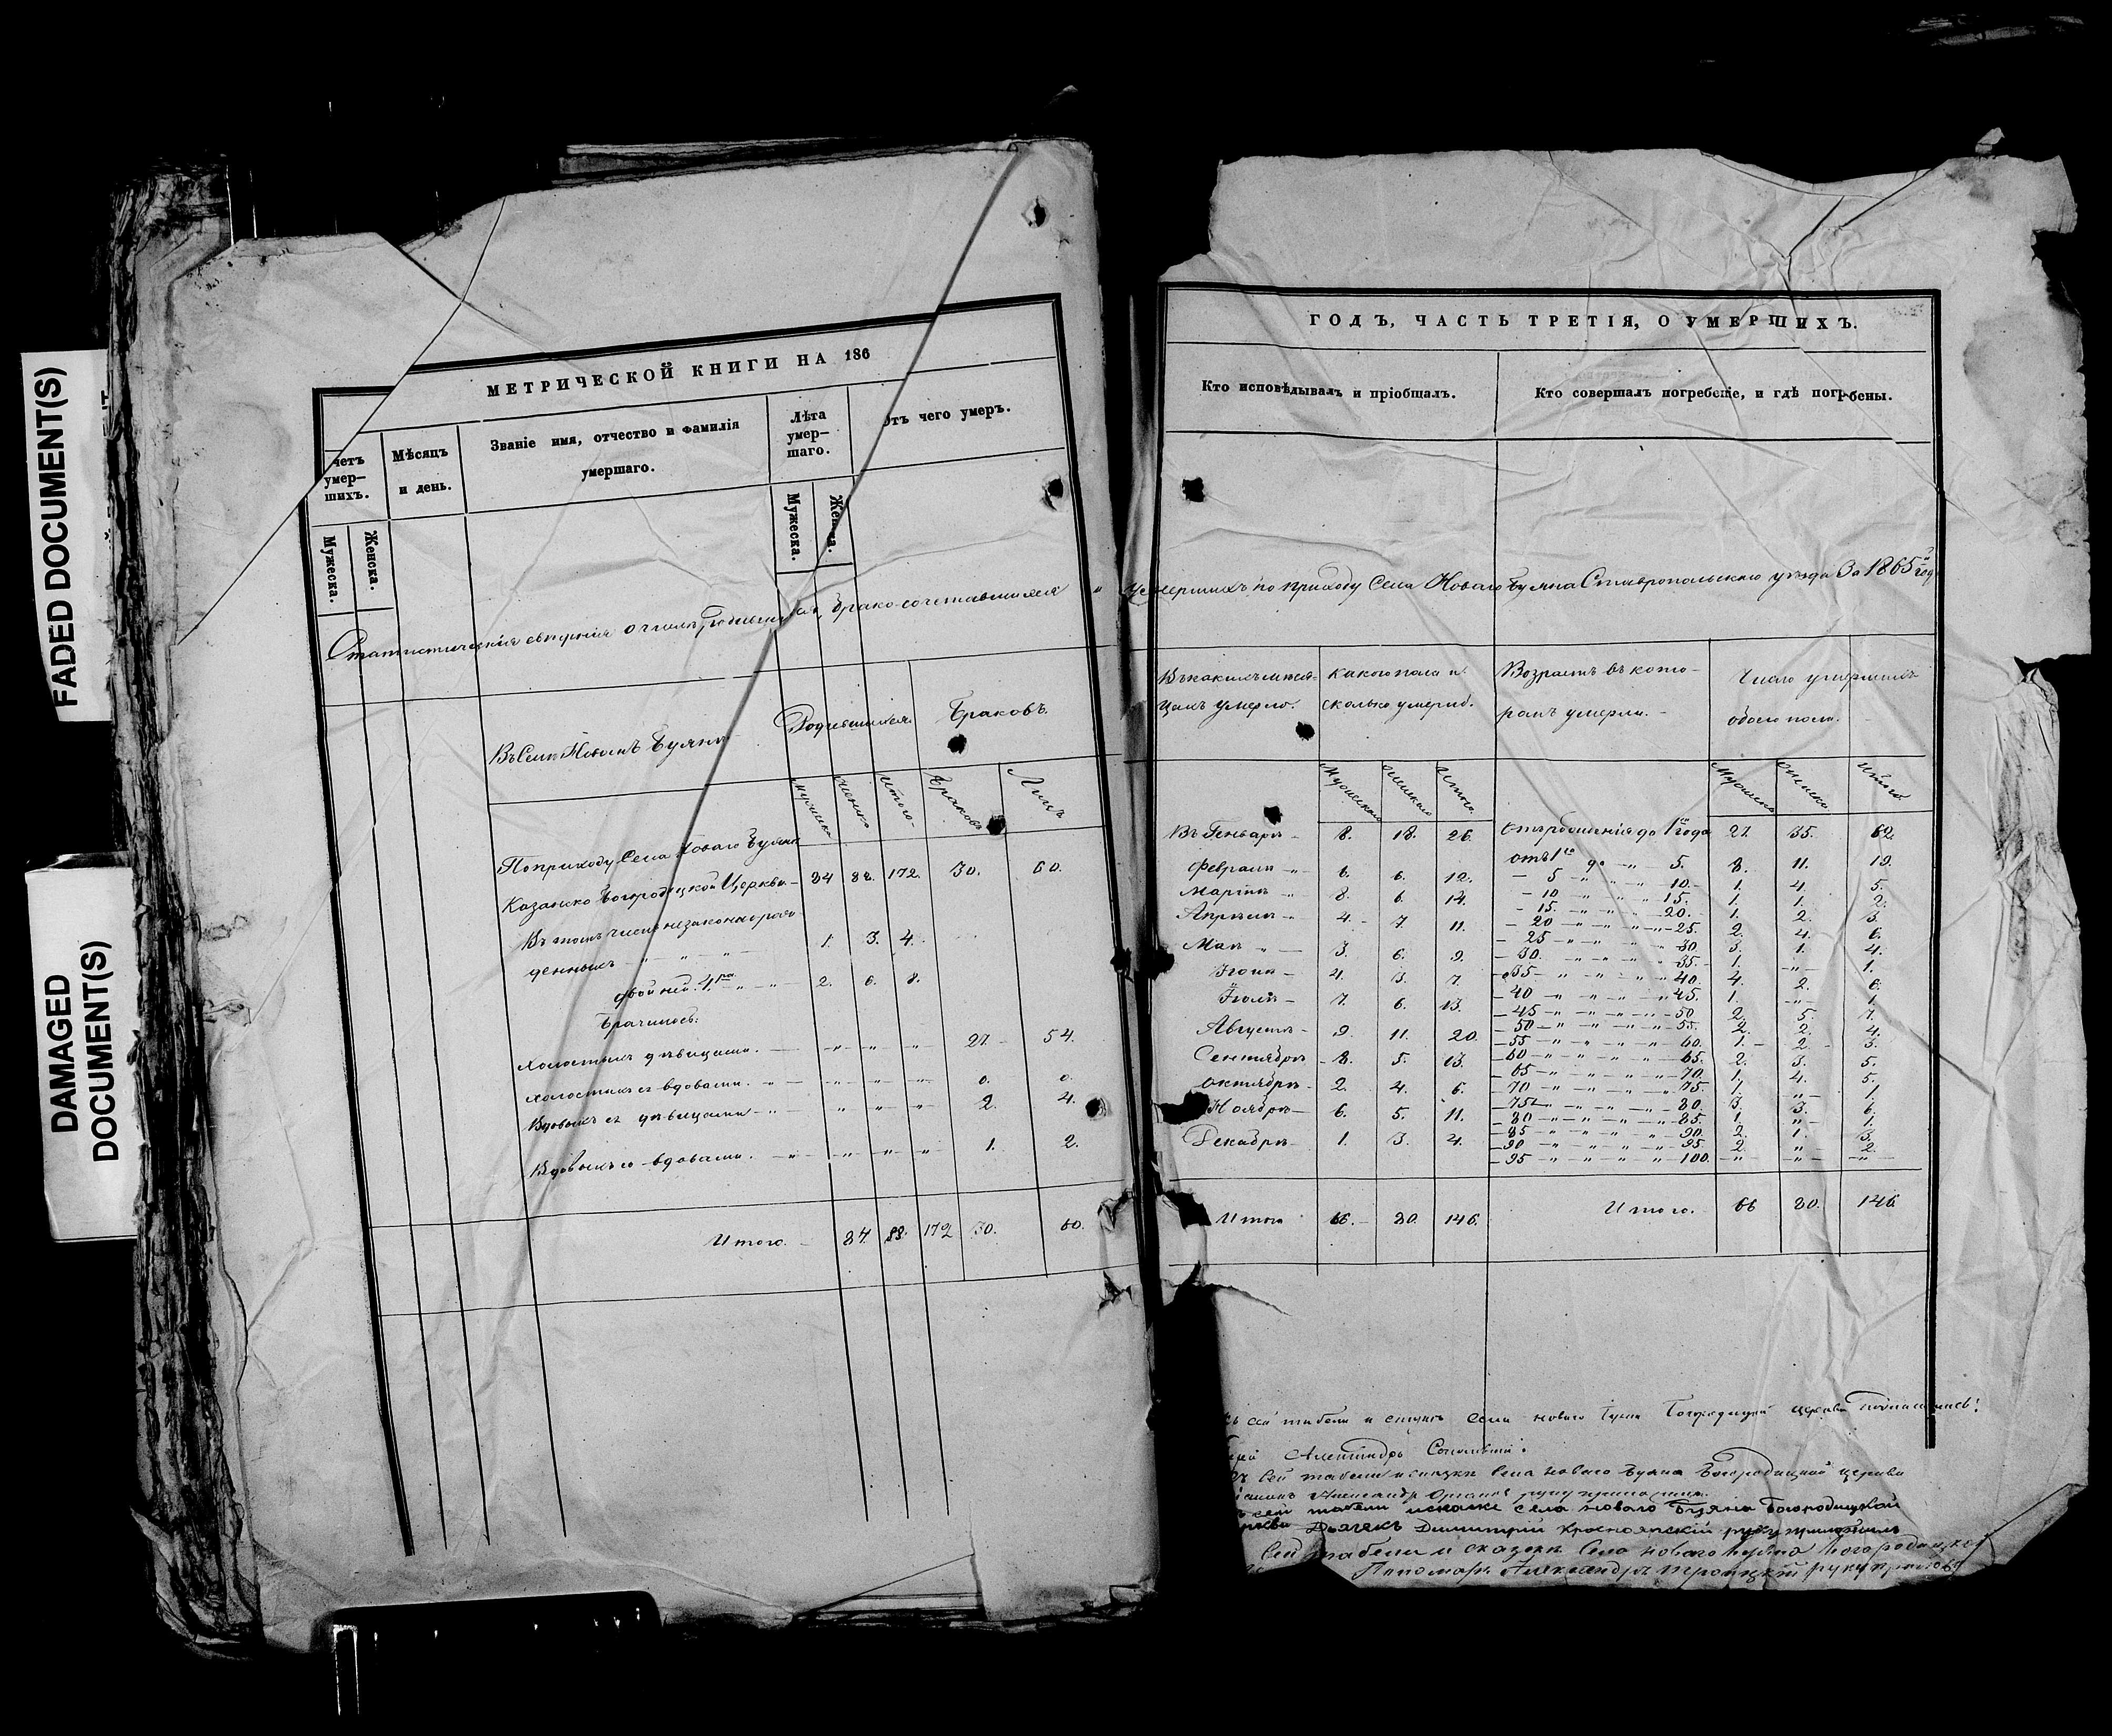 FADED DOCUMENT(S)
DAMAGED
DOCUMENT(S)
МЕТРИЧЕСКОЙ КНИГИ НА 186
четъ умер-шихъ.
Мѣсяцъ и день.
Званіе имя, отчество и фамилія
умершаго.
Лѣта умер-шаго.
Отъ чего умеръ.
Мужеска.
Женска.
Мужеска.
Статистическія свѣдѣнія о числѣ бракосочетавшихся и
Въ Селѣ Новомъ Буянѣ
Родившихся
Браковъ.
Мужеска Женска Итого Браковъ Лицъ
По приходу Села Новаго Буяна
Казанско Богородицкой Церкви 84 88. 172. 30. 60.
Въ томъ числѣ незаконнорож-
денныхъ 1. 3. 4.
двойней 4 2. 6. 8.
Брачилось:
Холостыхъ съ дѣвицами. 27. 54.
Холостыхъ съ вдовами. 0. 0.
Вдовыхъ съ дѣвицами 2. 4.
Вдовыхъ со вдовами. 1. 2.
Итого. 84. 88. 172 30. 60.
ГОДЪ, ЧАСТЬ ТРЕТІЯ, О УМЕРШИХЪ.
Кто исповѣдывалъ и пріобщалъ.
Кто совершалъ погребеніе, и гдѣ погребены.
умершихъ по приходу Села Новаго Буяна Ставропольскаго уѣзда За 1865й годъ
Въ какихъ мѣся-
цахъ умерло.
Какого пола и
сколько умерло.
Возрастъ въ кото-
ромъ умерли.
Число умершихъ
обоего пола.
Мужеска Женска Итого
Мужеска Женска Итого
Въ Генварѣ 8. 18. 26.
Февралѣ 6. 6. 12.
Мартѣ 8. 6. 14.
Апрѣлѣ 4. 7. 11.
Маѣ 3. 6. 9.
Іюнѣ 4. 3. 7.
Іюлѣ 7. 6. 13.
Августѣ 9. 11. 20.
Сентябрѣ 8. 5. 13.
Октябрѣ 2. 4. 6.
Ноябрѣ 6. 5. 11.
Декабрѣ 1. 3. 4.
Итого 66. 80. 146.
Отъ рожденія до 1го года 27. 35. 62.
отъ 1го до 5. 8. 11. 19.
5 10. 1. 4. 5.
10 15. 1. 1. 2.
15. 20. 1. 2. 3.
20 25. 2. 4. 6.
25 30 3. 1. 4.
30. 35. 1. 1.
35 40. 4. 2. 6.
40 45. 1. 1.
45 50 2. 5. 7.
50 55. 2. 2. 4.
55 60. 1. 2. 3.
60 65. 2. 3. 5.
65 70. 1. 4. 5.
70 75. 1. 1.
75 80. 3. 3. 6.
80 85. 1. 1.
85 90. 2. 1. 3.
90 95. 2. 2.
95 100.
Итого. 66 80. 146
сей табели и Села Новаго Буяна Богородицкой церкви
Александръ
сей табели и сказкѣ Села Новаго Буяна Богородицкой церкви
Александръ руку приложилъ.
сей табели и сказке села Новаго Буяна Богородицкой
церкви Дьячекъ Димитрій Красноярскій руку приложилъ
сей табели и сказкѣ Села Новаго Буяна Богородицкой
Пономарь Александръ Троицкій руку приложилъ